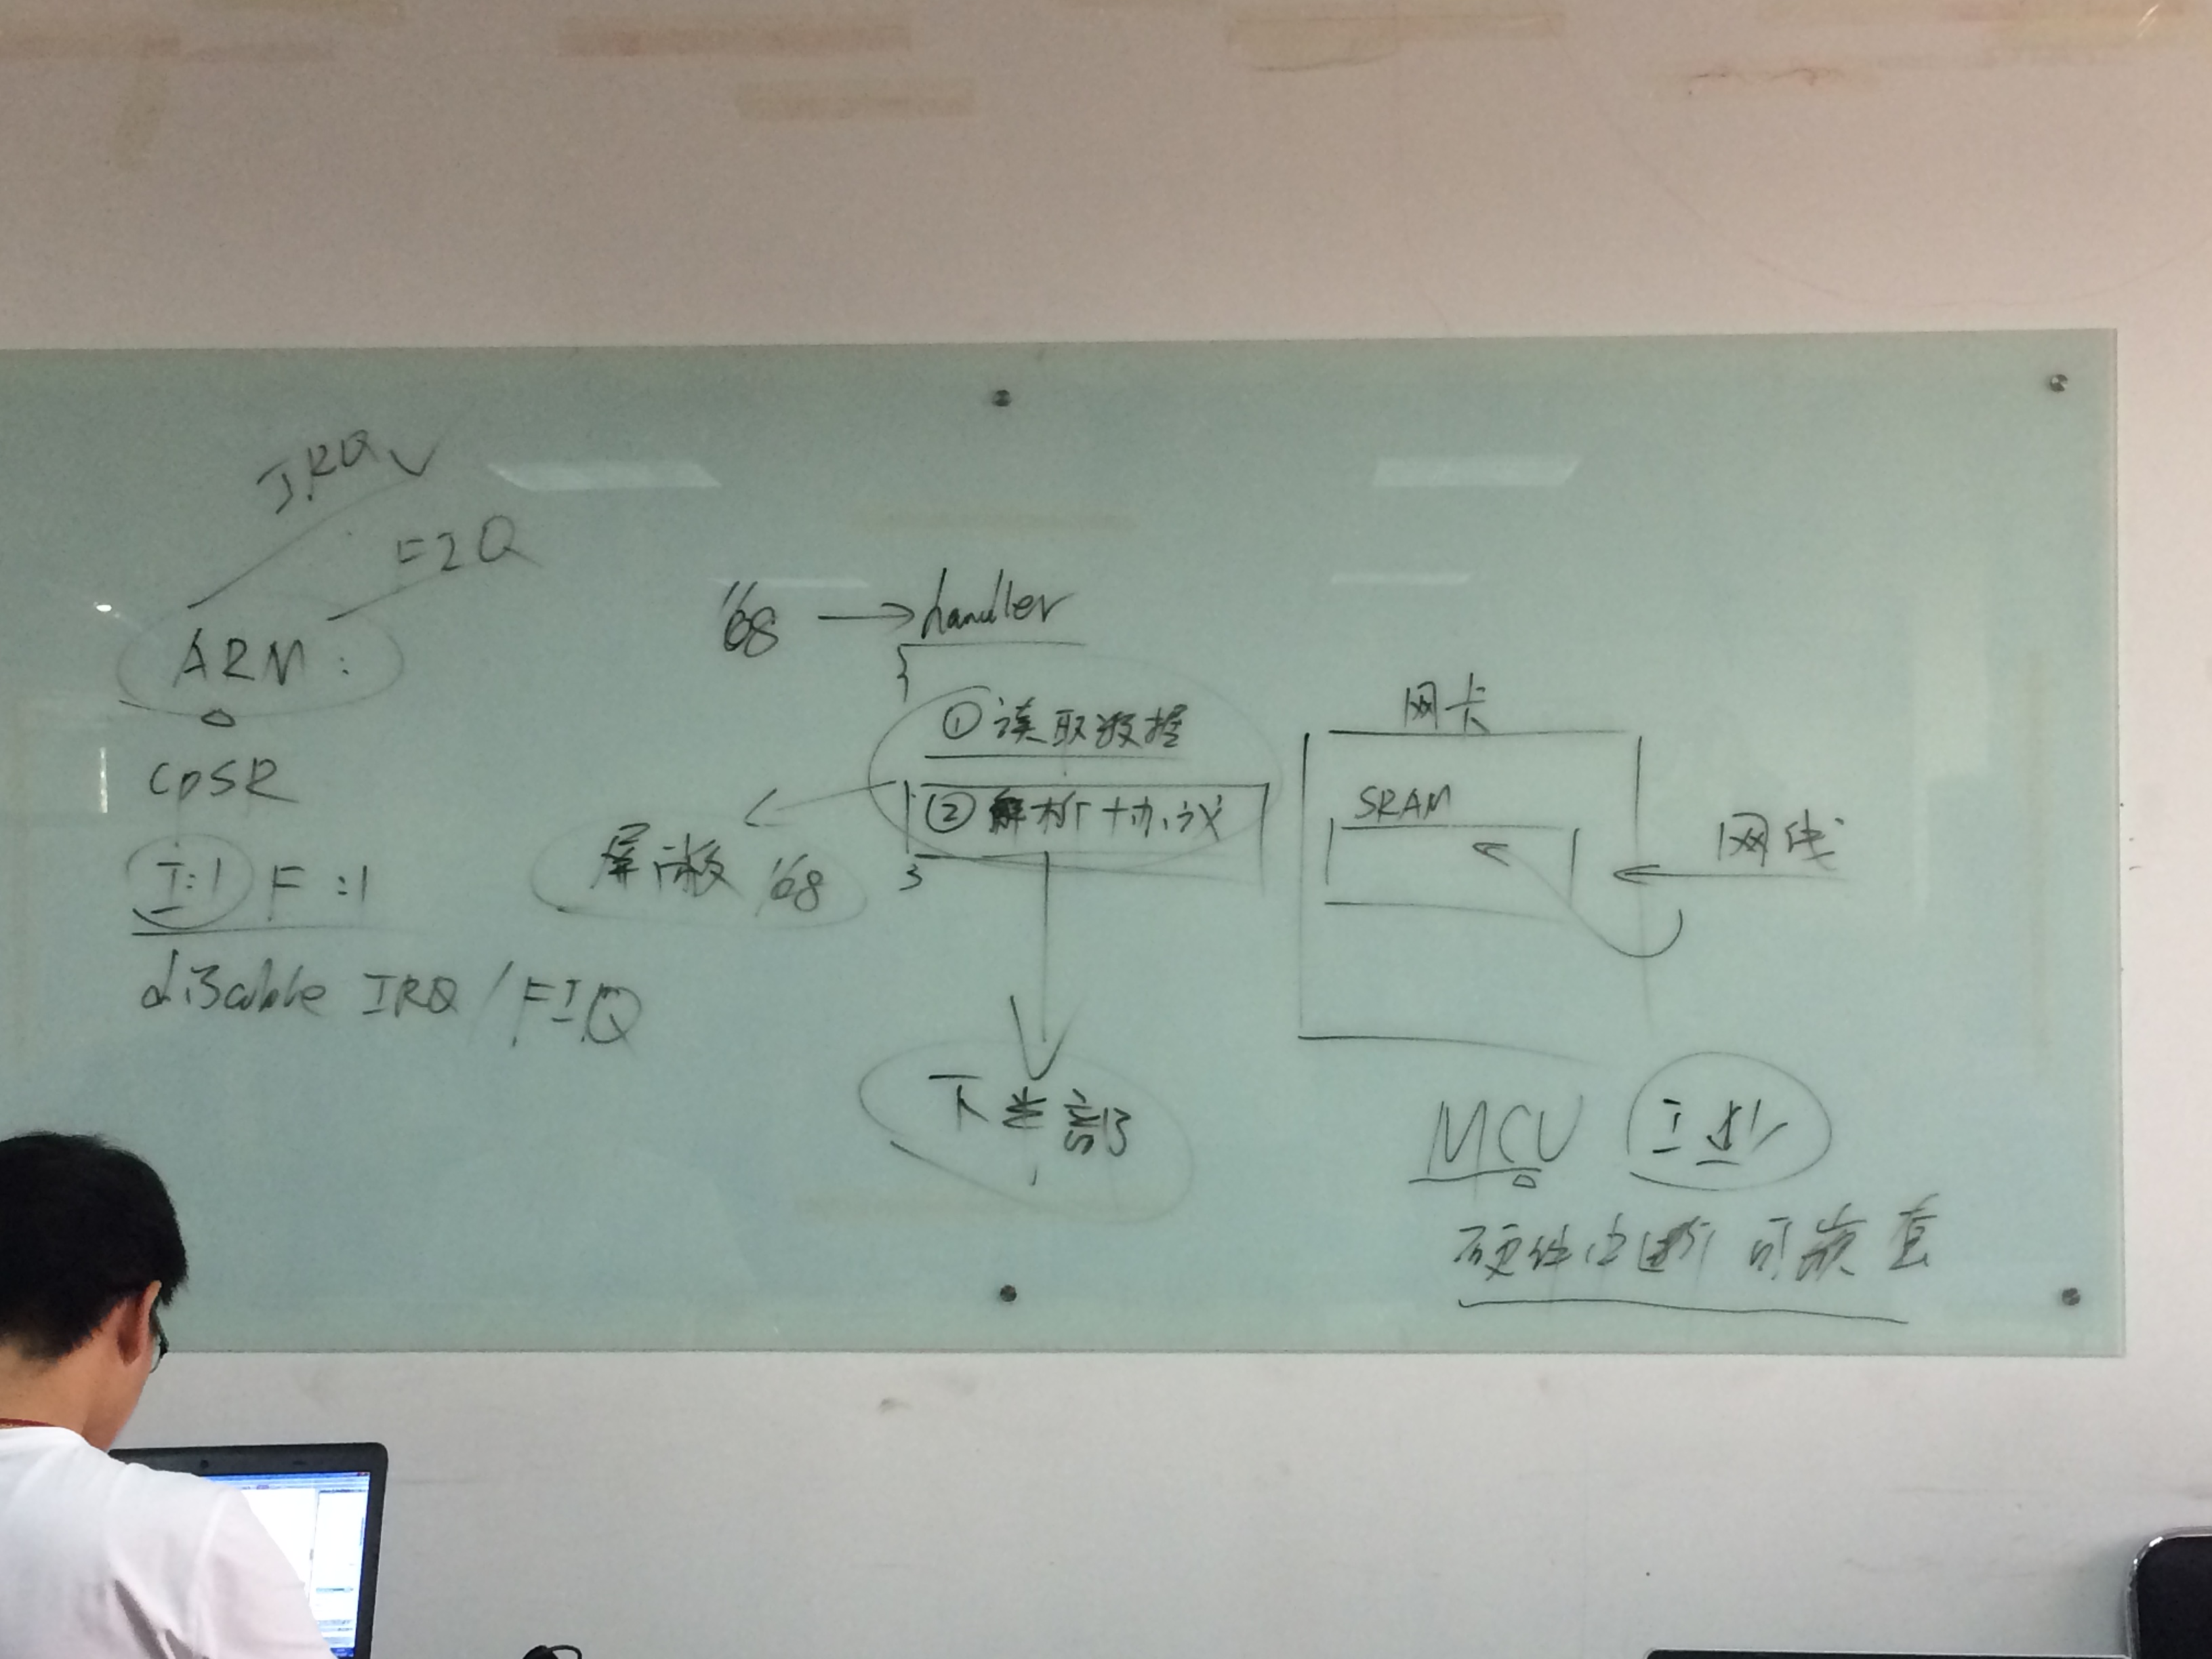 IRQ
FIQ
ARM:
CPSR
I:1 F:1
disable IRQ / FIQ
168 → handler
{
① 读取数据
② 解析协议
}
屏蔽 168
下半部
网卡
SRAM
网线
MCU
硬件中断可嵌套